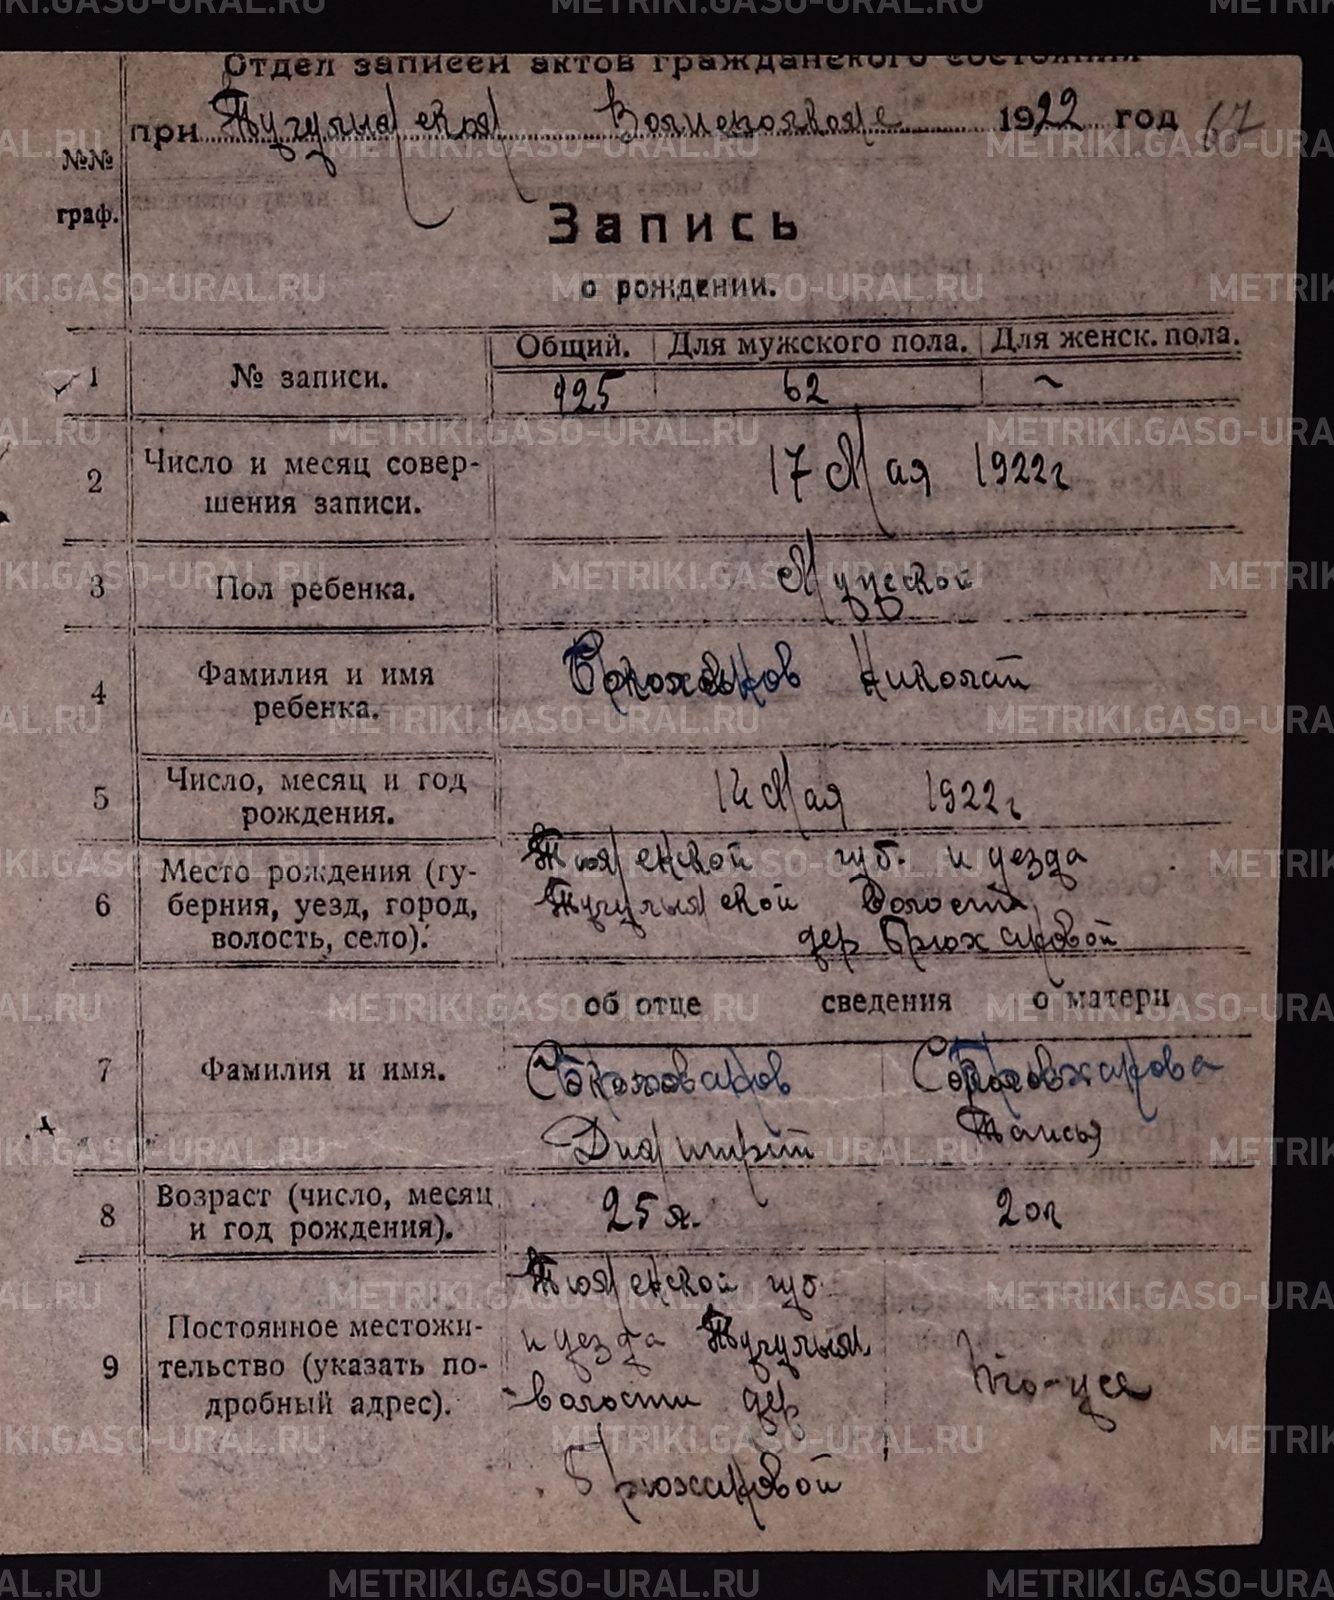 Отдел записей актов гражданского состояния
при Тугулымском Волисполкоме 1922 год 67
№№ граф.
Запись
о рождении.
Общий. Для мужского пола. Для женск. пола.
1 № записи. 125 62 ~
2 Число и месяц совер-
шения записи. 17 Мая 1922 г
3 Пол ребенка. Мужской
4 Фамилия и имя
ребенка. Николай
5 Число, месяц и год
рождения. Мая 1922 г
6 Место рождения (гу-
берния, уезд, город,
волость, село).
Тюменской губ. и уезда
Тугулымской Волости
дер Брюхановой
об отце сведения о матери
7 Фамилия и имя.
Дмитрий Таисья
8 Возраст (число, месяц
и год рождения). 25 л. 20 л
9 Постоянное местожи-
тельство (указать по-
дробный адрес).
Тюменской губ
и уезда Тугулым.
волости дер
METRIKI.GASO-URAL.RU